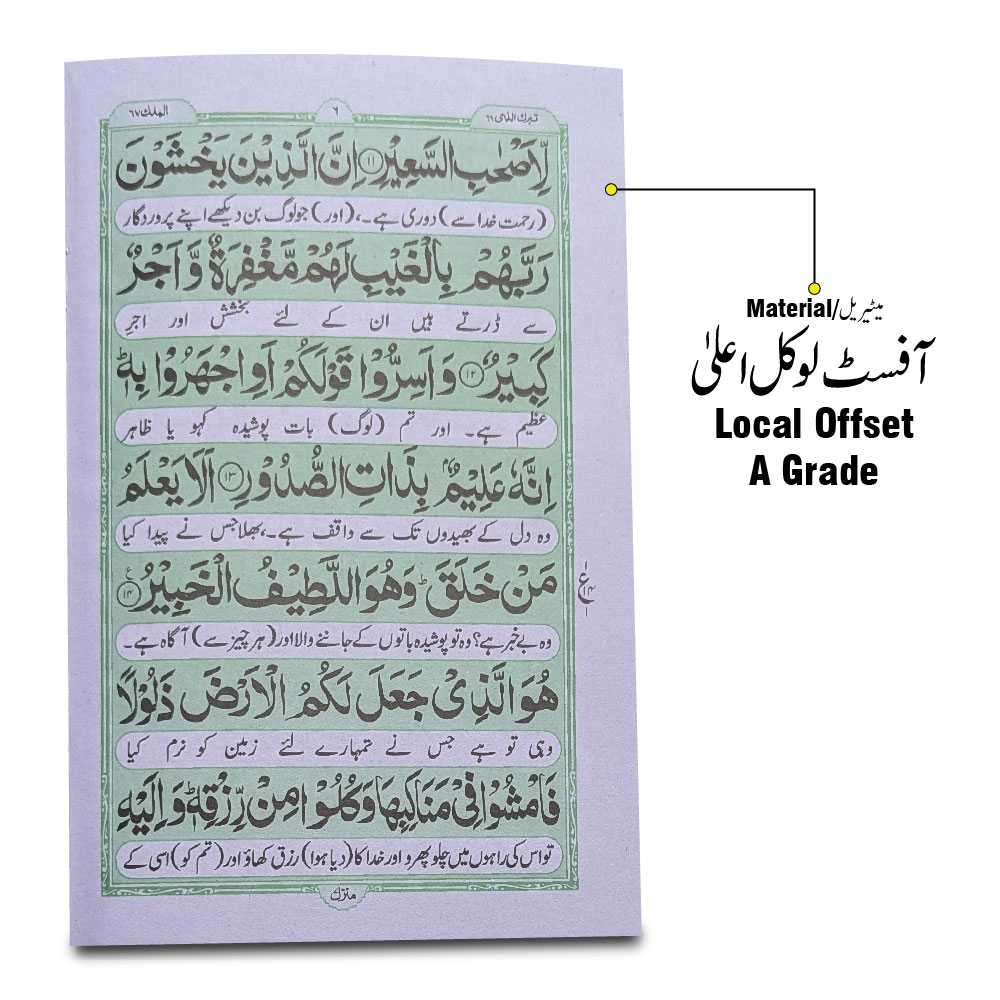 تبٰرك الذی ٢٩
٦
الملك ٦٧
لِّاَصْحٰبِ السَّعِيْرِ ﴿١١﴾ اِنَّ الَّذِيْنَ يَخْشَوْنَ
(رحمت خدا سے) دوری ہے۔، (اور) جو لوگ بن دیکھے اپنے پروردگار
رَبَّهُمْ بِالْغَيْبِ لَهُمْ مَّغْفِرَةٌ وَّاَجْرٌ
سے ڈرتے ہیں ان کے لئے بخشش اور اجرِ
كَبِيْرٌ ﴿١٢﴾ وَاَسِرُّوْا قَوْلَكُمْ اَوِ اجْهَرُوْا بِهٖ ؕ
عظیم ہے۔ اور تم (لوگ) بات پوشیدہ کہو یا ظاہر
اِنَّهٗ عَلِيْمٌۢ بِذَاتِ الصُّدُوْرِ ﴿١٣﴾ اَلَا يَعْلَمُ
وہ دل کے بھیدوں تک سے واقف ہے۔، بھلا جس نے پیدا کیا
مَنْ خَلَقَ ؕ وَهُوَ اللَّطِيْفُ الْخَبِيْرُ ﴿١٤﴾
وہ بے خبر ہے؟ وہ تو پوشیدہ باتوں کے جاننے والا اور (ہر چیز سے) آگاہ ہے۔
هُوَ الَّذِیْ جَعَلَ لَكُمُ الْاَرْضَ ذَلُوْلًا
وہی تو ہے جس نے تمہارے لئے زمین کو نرم کیا
فَامْشُوْا فِیْ مَنَاكِبِهَا وَكُلُوْا مِنْ رِّزْقِهٖ ؕ وَاِلَيْهِ
تو اس کی راہوں میں چلو پھرو اور خدا کا (دیا ہوا) رزق کھاؤ اور (تم کو) اسی کے
Material/میٹیریل
آفسٹ لوکل اعلیٰ
Local Offset
A Grade